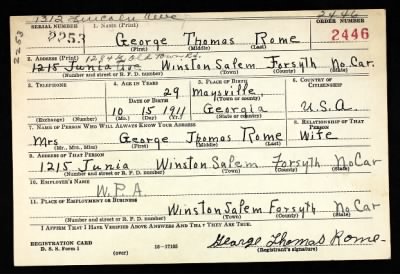 1312 Lincoln Ave
SERIAL NUMBER 1. NAME (Print) ORDER NUMBER
2446
2253 2253 George Thomas Rome 2446
(First) (Middle) (Last)
2. ADDRESS (Print)
1215 Junia Ave Winston Salem Forsyth No. Car.
(Number and street or R. F. D. number) (Town) (County) (State)
3. TELEPHONE 4. AGE IN YEARS 5. PLACE OF BIRTH 6. COUNTRY OF CITIZENSHIP
29 Maysville
DATE OF BIRTH (Town or county)
10 15 1911 Georgia U.S.A
(Exchange) (Number) (Mo.) (Day) (Yr.) (State or country)
7. NAME OF PERSON WHO WILL ALWAYS KNOW YOUR ADDRESS 8. RELATIONSHIP OF THAT PERSON
Mrs George Thomas Rome Wife
(Mr., Mrs., Miss) (First) (Middle) (Last)
9. ADDRESS OF THAT PERSON
1215 Junia Winston Salem Forsyth No Car
(Number and street or R. F. D. number) (Town) (County) (State)
10. EMPLOYER'S NAME
W.P.A.
11. PLACE OF EMPLOYMENT OR BUSINESS
Winston Salem Forsyth No Car
(Number and street or R. F. D. number) (Town) (County) (State)
I AFFIRM THAT I HAVE VERIFIED ABOVE ANSWERS AND THAT THEY ARE TRUE.
REGISTRATION CARD
D. S. S. Form 1 (over) 16-17105 George Thomas Rome
(Registrant's signature)